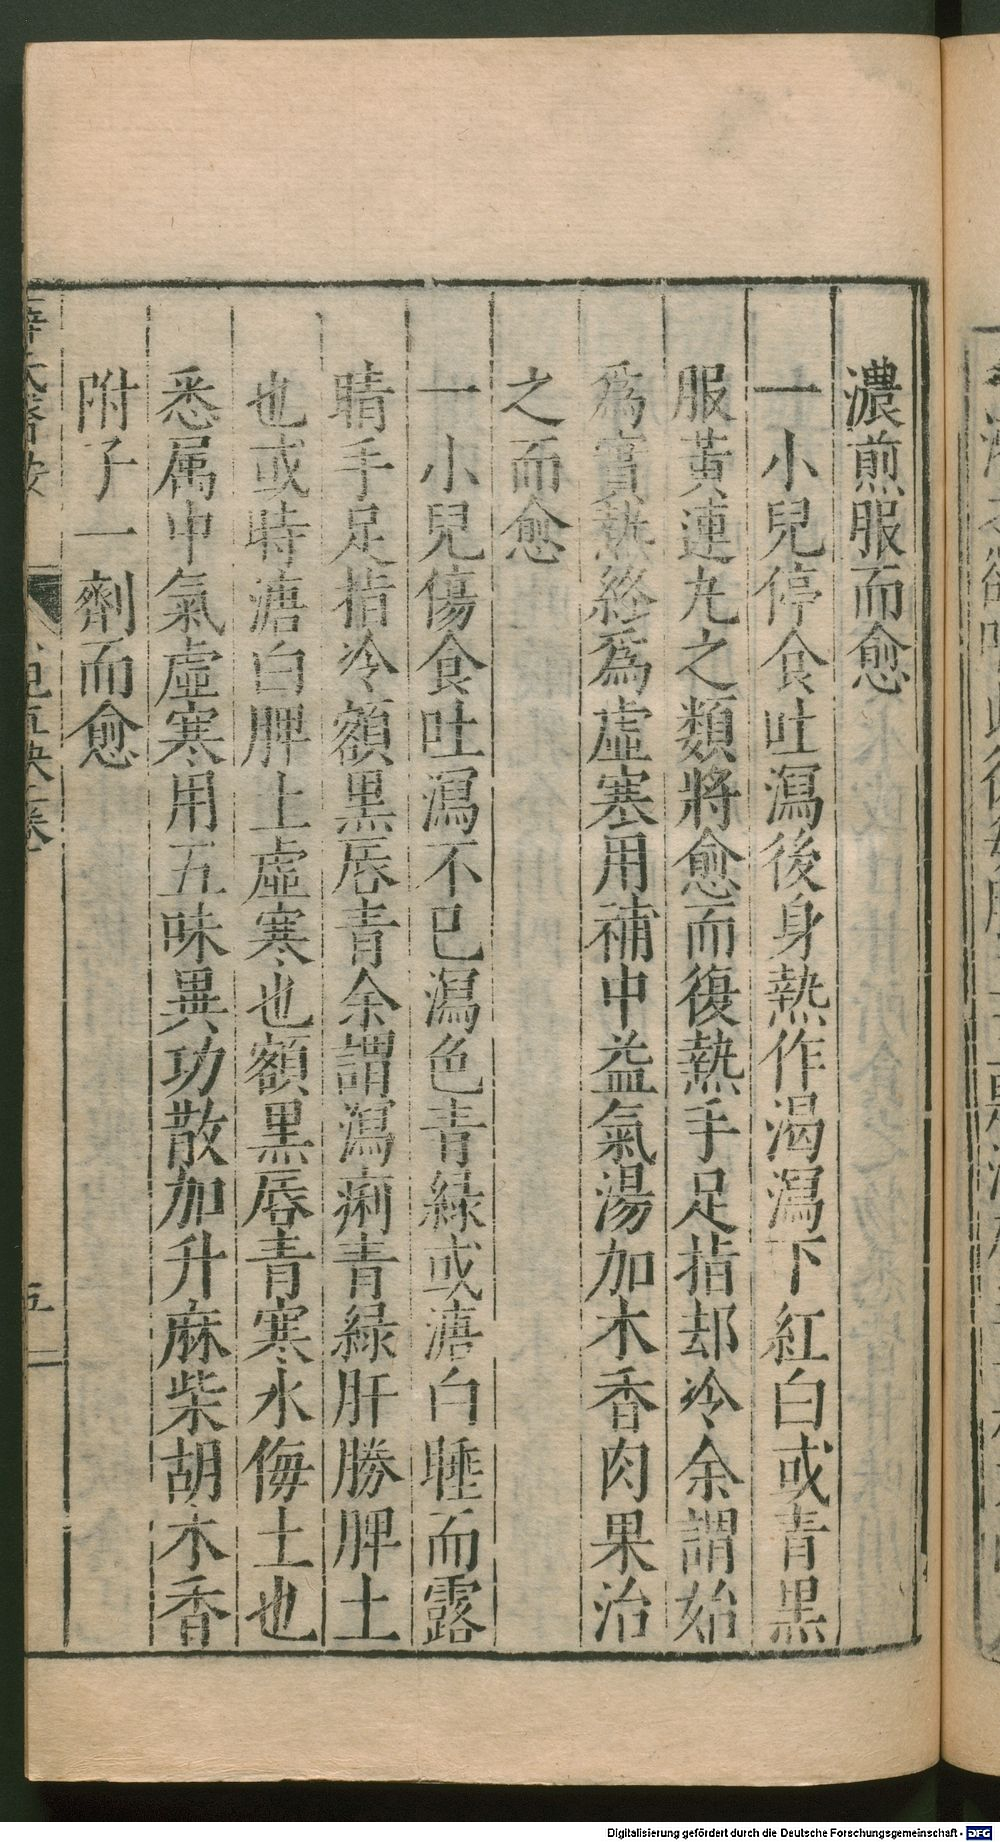 濃煎服而愈
一小兒停食吐瀉後身熱作渴瀉下紅白或青黒
服黃連丸之類將愈而復熱手足指却冷余謂始
爲實熱終爲虛寒用補中益氣湯加木香肉果治
之而愈
一小兒傷食吐瀉不已瀉色青緑或溏白睡而露
睛手足指冷額黒唇青余謂瀉痢青緑肝勝脾土
也或時溏白脾土虛寒也額黒唇青寒水侮土也
悉属中氣虛寒用五味異功散加升麻柴胡木香
附子一劑而愈
五
Digitalisierung gefördert durch die Deutsche Forschungsgemeinschaft - DFG